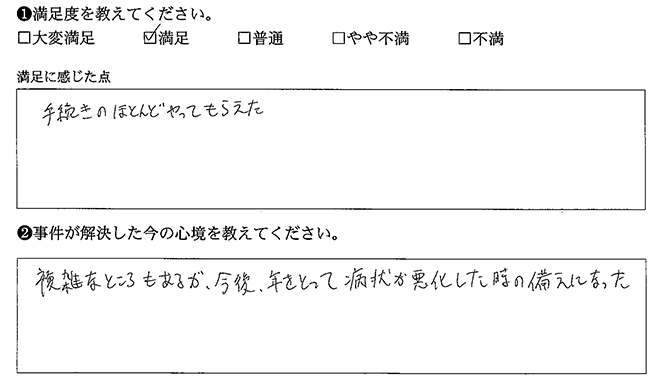 ❶満足度を教えてください。
□大変満足 ☑満足 □普通 □やや不満 □不満
満足に感じた点
手続きのほとんどやってもらえた
❷事件が解決した今の心境を教えてください。
複雑なところもあるが、今後、年をとって病状が悪化した時の備えになった